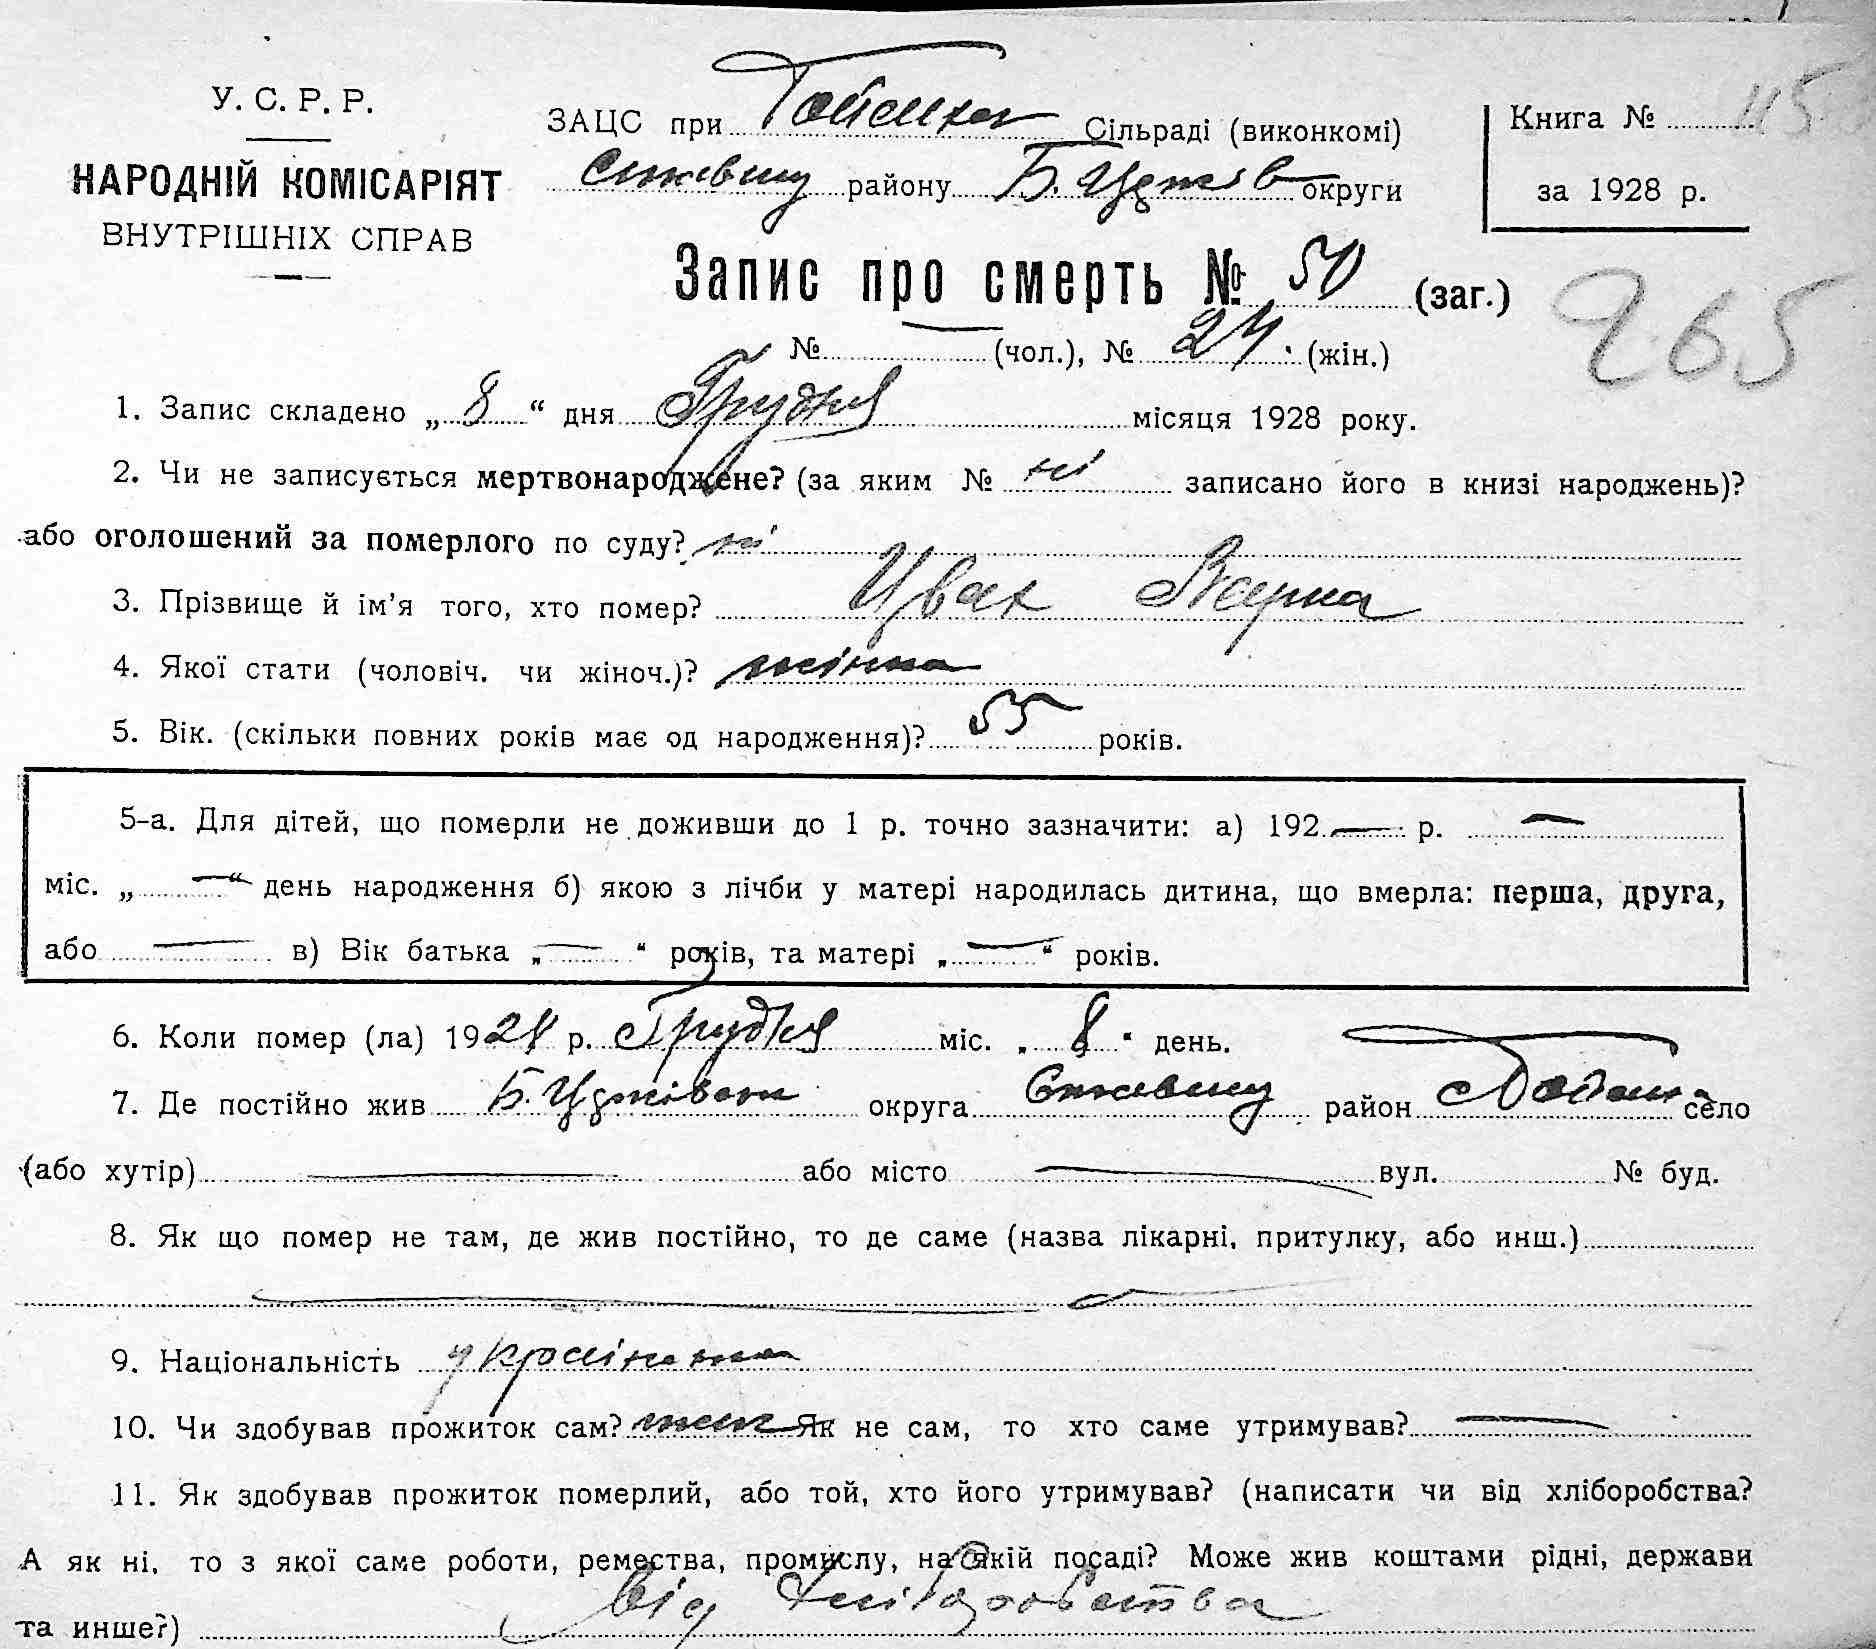 У. С. Р. Р.
НАРОДНІЙ КОМІСАРІЯТ
ВНУТРІШНІХ СПРАВ
ЗАЦС при Сільраді (виконкомі)
району округи
Книга № 115
за 1928 р.
Запис про смерть № 50 (заг.)
265
№ (чол.), № 24 (жін.)
1. Запис складено „ 8 “ дня Грудня місяця 1928 року.
2. Чи не записується мертвонароджене? (за яким № ні записано його в книзі народжень)?
або оголошений за померлого по суду? ні
3. Прізвище й ім’я того, хто помер? Цвах
4. Якої стати (чоловіч. чи жіноч.)? жінка
5. Вік. (скільки повних років має од народження)? 55 років.
5-а. Для дітей, що померли не доживши до 1 р. точно зазначити: а) 192 — р. —
міс. „ — “ день народження б) якою з лічби у матері народилась дитина, що вмерла: перша, друга,
або — в) Вік батька „ — “ років, та матері „ — “ років.
6. Коли помер (ла) 1928 р. Грудня міс. „ 8 “ день.
7. Де постійно жив округа район село
(або хутір) — або місто — вул. № буд.
8. Як що помер не там, де жив постійно, то де саме (назва лікарні, притулку, або инш.)
9. Національність українка
10. Чи здобував прожиток сам? Як не сам, то хто саме утримував? —
11. Як здобував прожиток померлий, або той, хто його утримував? (написати чи від хліборобства?
А як ні, то з якої саме роботи, ремества, промислу, на якій посаді? Може жив коштами рідні, держави
та инше?) від хліборобства